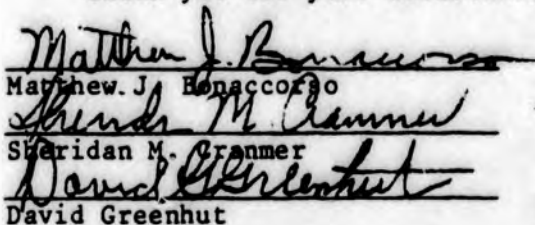 Matthew J. Bonaccorso
Matthew J. Bonaccorso
Sheridan M. Cranmer
Sheridan M. Cranmer
David G Greenhut
David Greenhut